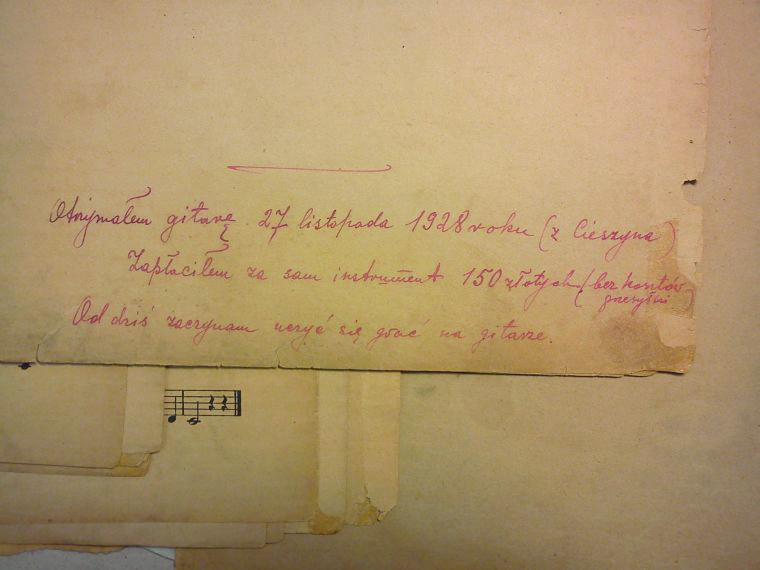 Otrzymałem gitarę 27 listopada 1928 roku (z Cieszyna)
Zapłaciłem za sam instrument 150 złotych (bez kosztów
przesyłki
Od dziś zaczynam uczyć się grać na gitarze.